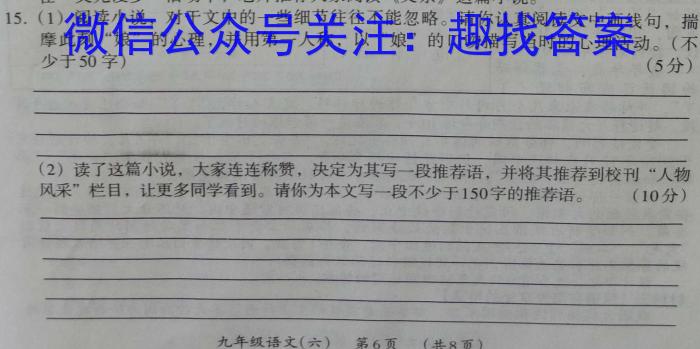 15. (1) 阅读小说，对于文中的一些细节往往不能忽略。请你认真阅读文中画线句，揣
摩此刻“娘”的心理，并用第一人称，以“娘”的口吻描写当时的心理活动。(不
少于50字) (5分)
微信公众号关注：趣找答案
(2) 读了这篇小说，大家连连称赞，决定为其写一段推荐语，并将其推荐到校刊“人物
风采”栏目，让更多同学看到。请你为本文写一段不少于150字的推荐语。 (10分)
九年级语文(六) 第6页 (共8页)